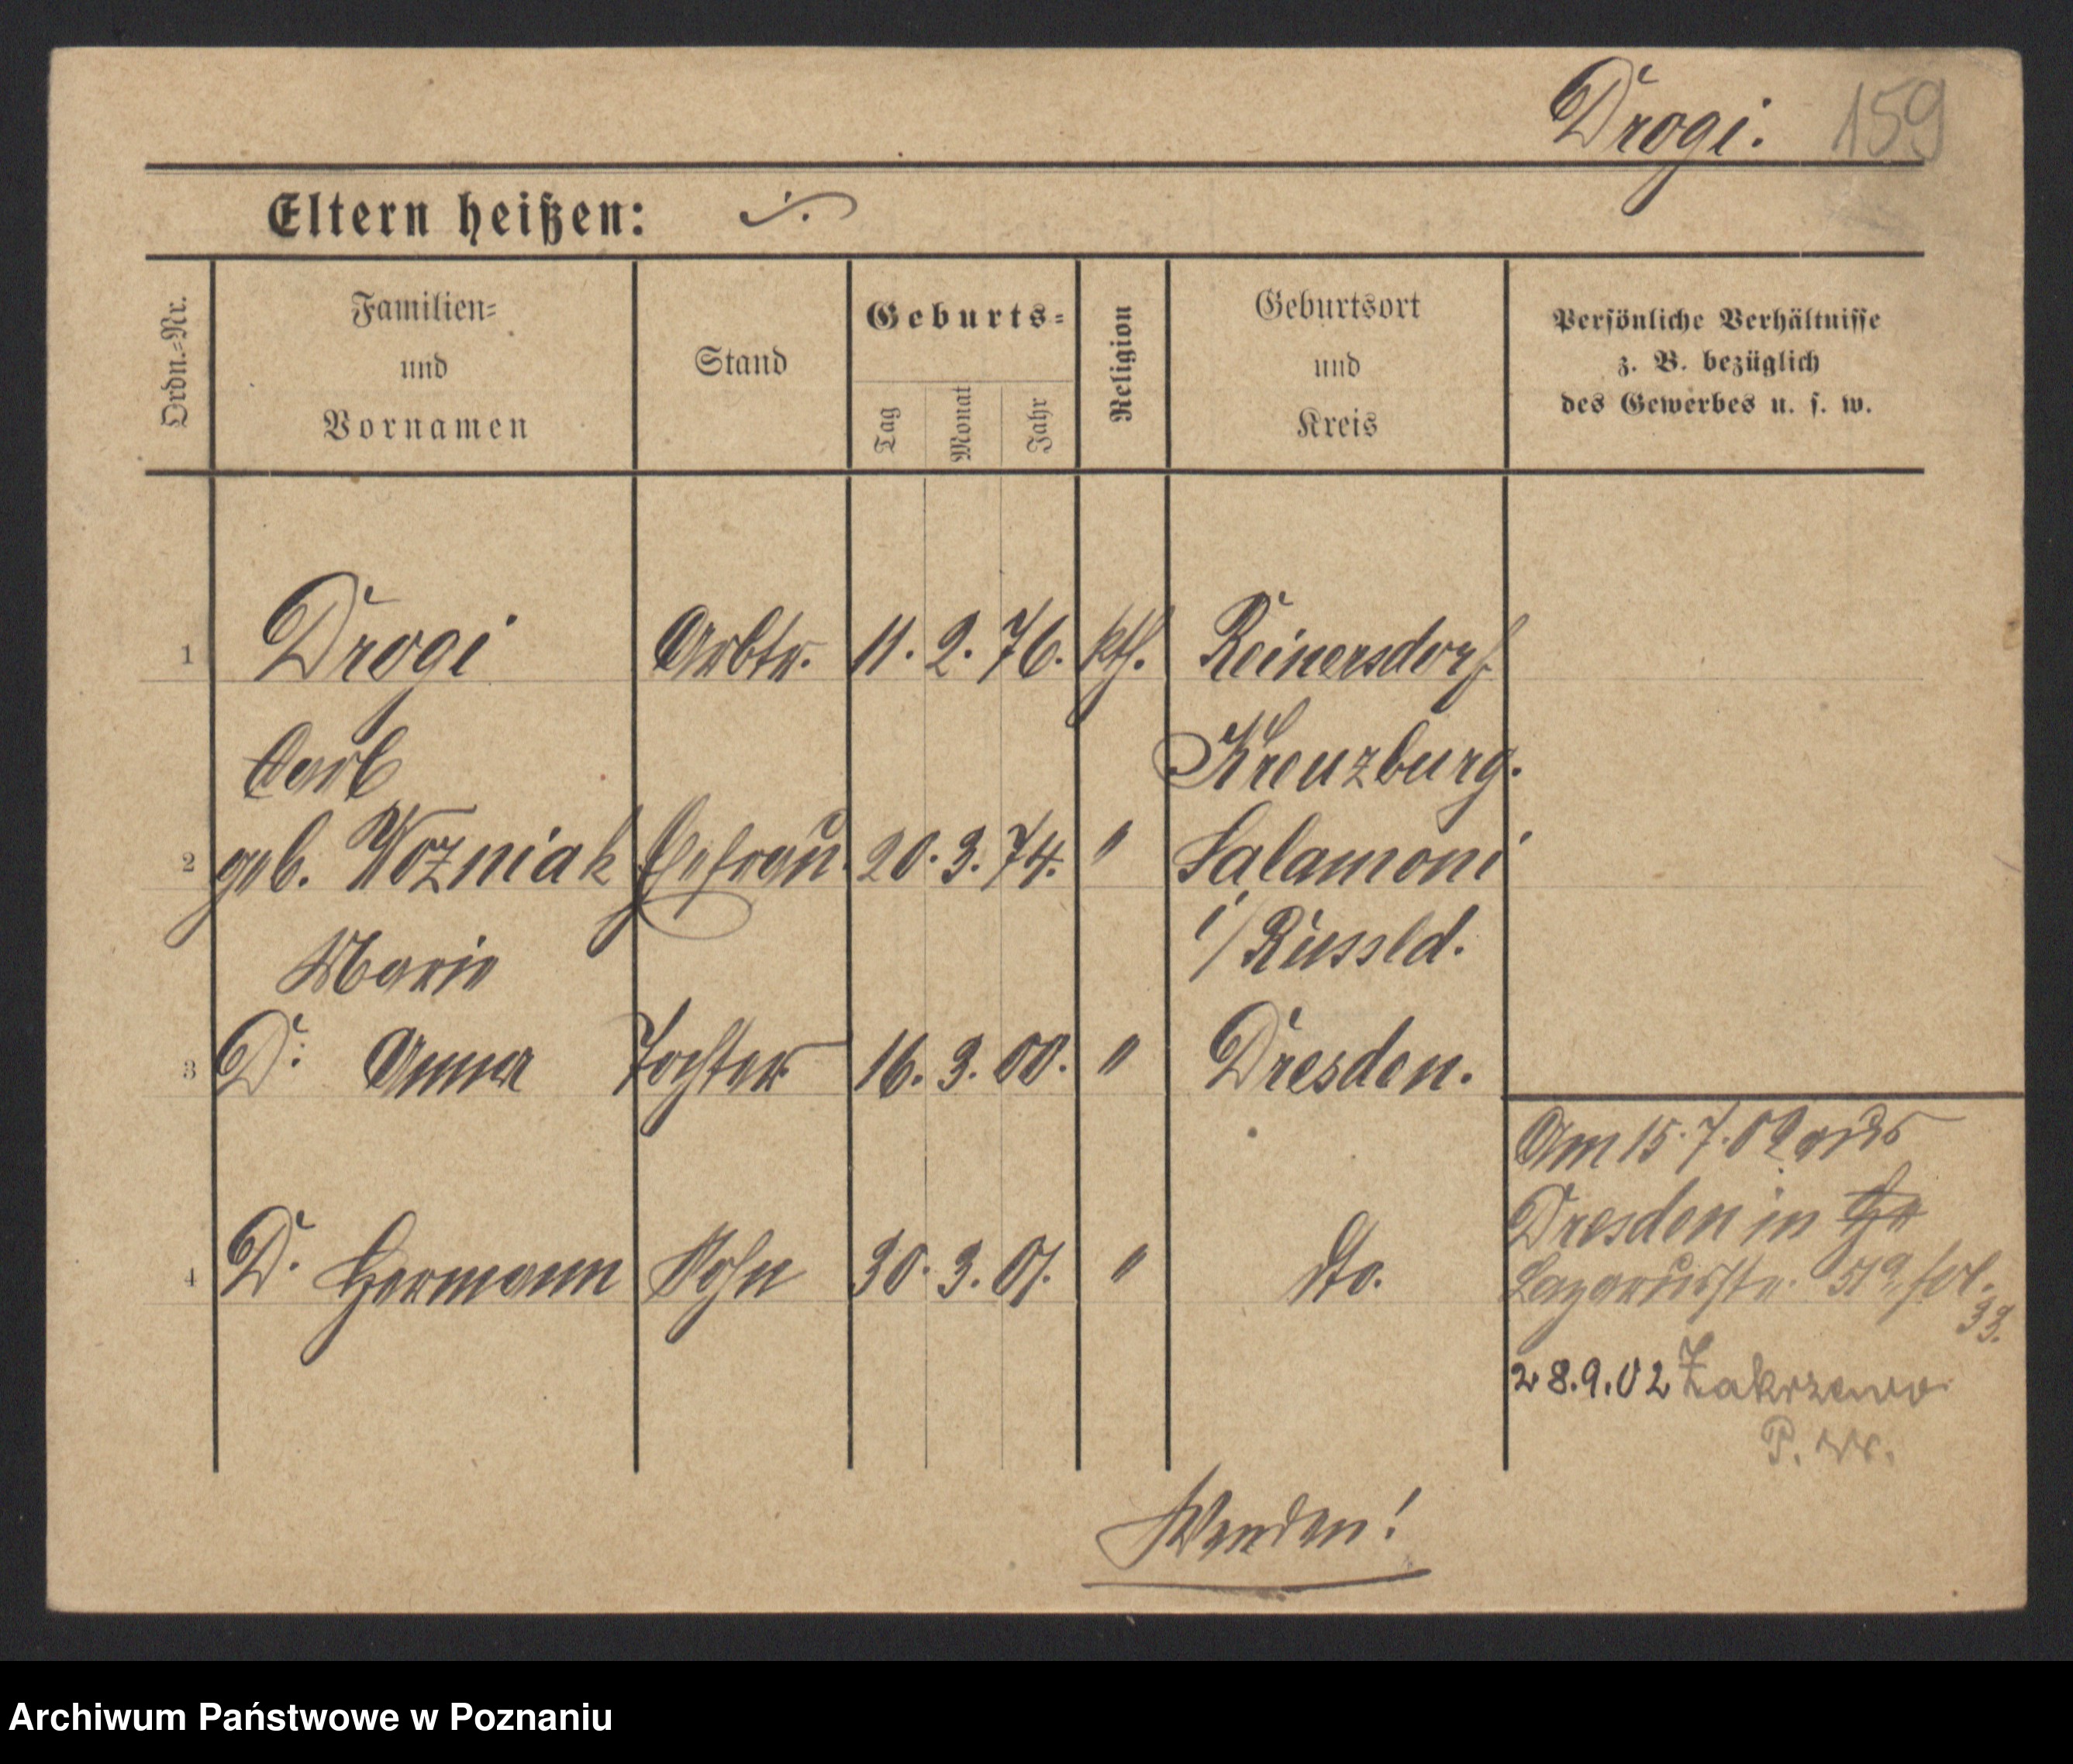 Drogi. 159
Eltern heißen: ./.
Ordn.=Nr.
Familien=
und
Vornamen
Stand
Geburts=
Tag
Monat
Jahr
Religion
Geburtsort
und
Kreis
Persönliche Verhältnisse
z. B. bezüglich
des Gewerbes u. s. w.
1 Drogi Arbtr. 11. 2. 76. kth. Reinersdorf
Carl Kreuzburg.
2 geb. Wozniak Ehefrau. 20. 3. 74. " Salamoni
Marie i/Russld.
3 D. Anna Tochter 16. 3. 00. " Dresden.
Am 15.7.02 aus
Dresden in
4 D. Hermann Sohn 30. 3. 01. " dto.
Lazarusstr. fol.
33.
28.9.02 Zakrzewo
P. W.
Wenden!
Archiwum Państwowe w Poznaniu